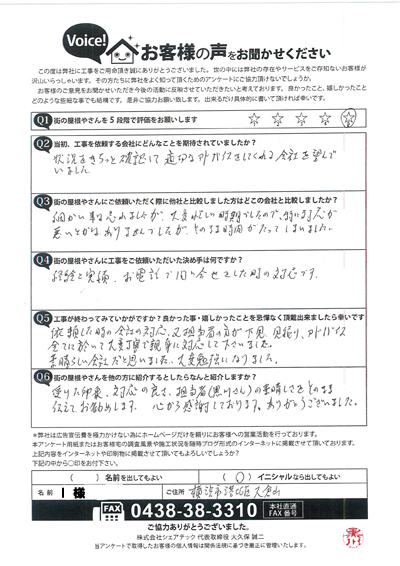 Voice!
お客様の声をお聞かせください
この度は弊社に工事をご用命頂き誠にありがとうございました。世の中には弊社の存在やサービスをご存知ないお客様が
沢山いらっしゃいます。その方たちに弊社をよく知って頂くためのアンケートにご協力頂けないでしょうか。
お客様のご意見をお聞かせいただき今後の活動に反映させていただきたいと考えております。良かったこと、嬉しかったこと
どのような些細な事でも結構です。是非ご協力お願い致します。出来るだけ具体的に書いて頂ければ幸いです。
Q1 街の屋根やさんを5段階で評価をお願いします ☆ ☆ ☆ ☆ ☆
Q2 当初、工事を依頼する会社にどんなことを期待されていましたか?
状況をきちっと確認して適切なアドバイスをしてくれる会社を望んで
いました。
Q3 街の屋根やさんにご依頼いただく際に他社と比較しました方はどこの会社と比較しましたか?
細かい事は忘れましたが、大変忙しい時期でしたので、特に対応が
悪いとかはありませんでしたが、そのまま時間がたってしまいました。
Q4 街の屋根やさんに工事をご依頼いただいた決め手は何ですか?
経験と実績、お電話で問い合せをした時の対応です。
Q5 工事が終わってみていかがですか?良かった事・嬉しかったことを忌憚なく頂戴出来ましたら幸いです
依頼した時の会社の対応、又担当者の方が下見、見積り、アドバイス
全てに於いて大変丁寧で親身に対応して下さいました。
素晴らしい会社だと思いました。大変勉強になりました。
Q6 街の屋根やさんを他の方に紹介するとしたらなんと紹介しますか?
対応の良さ、担当者(黒川さん)の素晴しさをそのまま
伝えてお勧めします。心から感謝しております。ありがとうございました。
※弊社は広告宣伝費を極力かけない為にホームページだけを頼りにお客様への営業活動を行っております。
本アンケート用紙またはお客様宅の調査風景や施工状況を随時ブログ形式のインターネットに掲載させて頂いております。
上記内容をインターネットや印刷物に掲載させて頂いてもよろしいでしょうか?
下記の中から○印をお付下さい。
( ) 名前を出してもよい (○) イニシャルなら出してもよい
名前 I 様 ご住所 横浜市港北区大倉山
FAX 0438-38-3310 本社直通 FAX番号
ご協力ありがとうございました。
株式会社シェアテック 代表取締役 大久保 誠二
当アンケートで取得したお客様の個人情報は関係法規に基づき厳正に管理いたします。